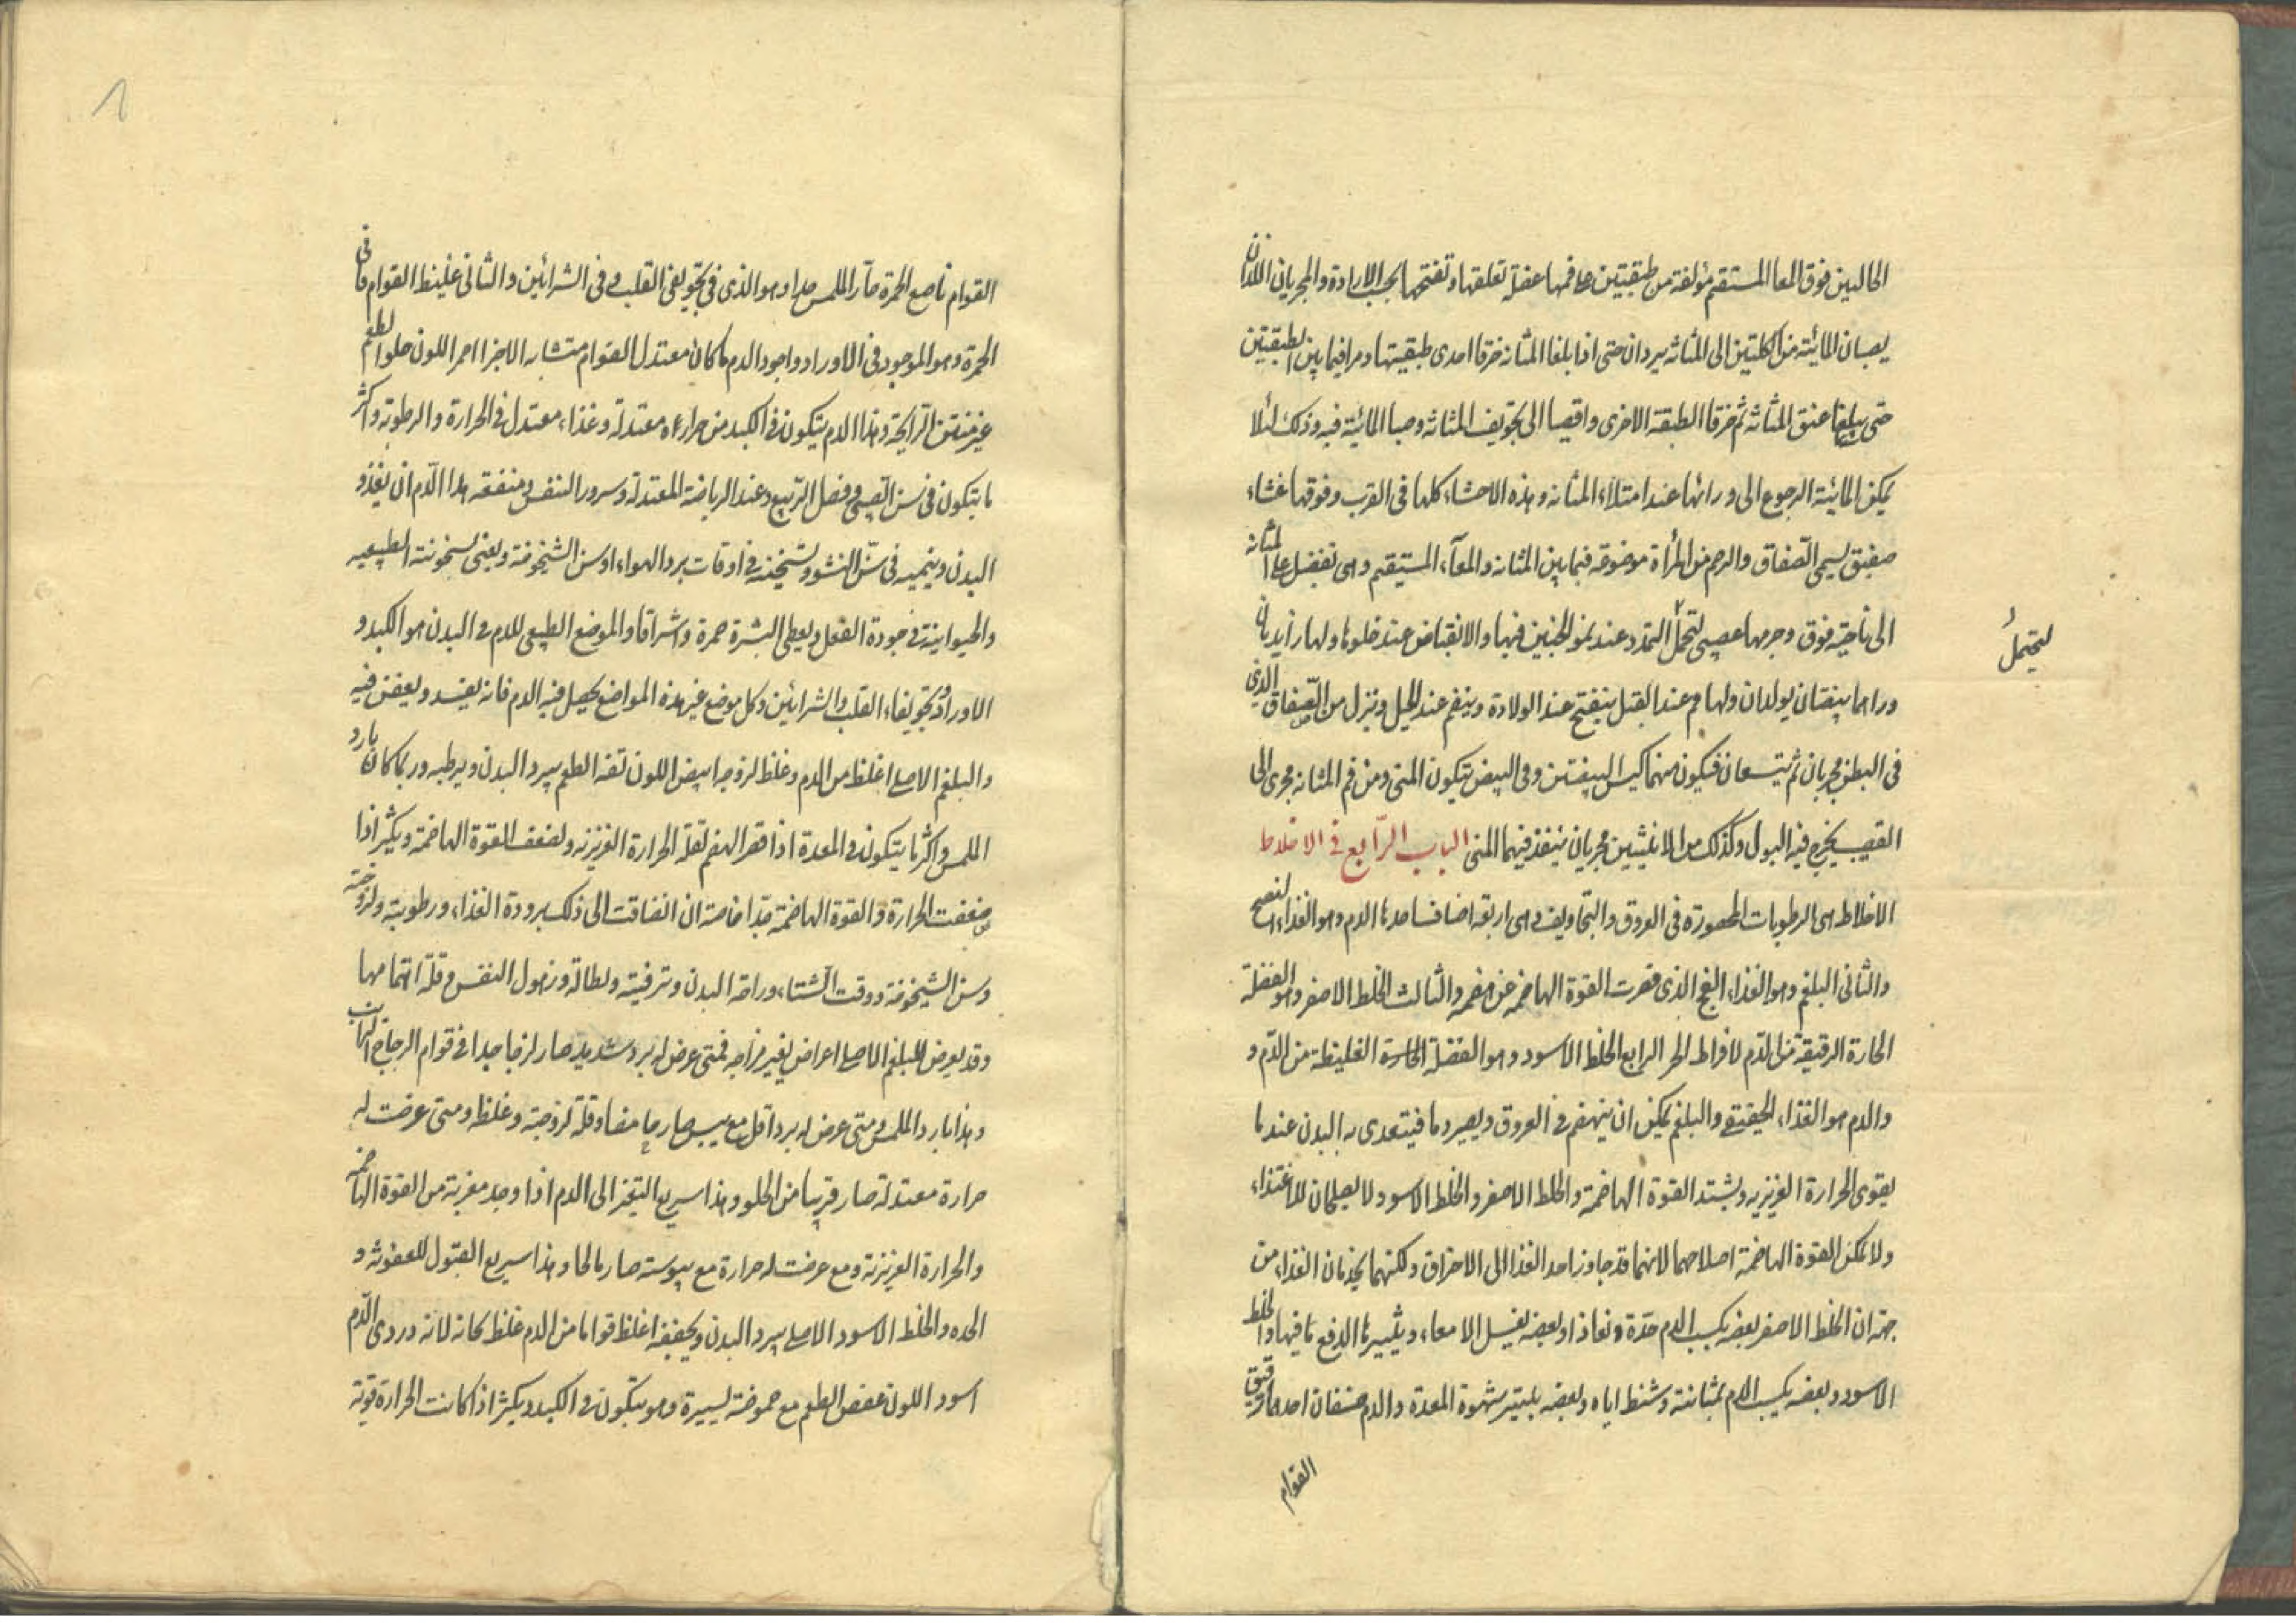 الحالبين فوق المعا المستقيم مؤلفة من طبقتين علي فمها عضلة تغلقها وتفتحها بحسب الارادة والمجريان اللذان
يصبان المائية من الكليتين الى المثانة يبردان حتى اذا بلغا المثانة خرقا احدى طبقيتها ومرا فيما بين الطبقتين
حتى يبلغا عنق المثانة ثم خرقا الطبقة الاخرى وافضيا الى تجويف المثانة وصبا المائية فيه وذلك لئلا
يمكن المائية الرجوع الى ورائها عند امتلاء المثانة وهذه الاحشاء كلها فى القرب وفوقها غشاء
صفيق يسمى الصفاق والرحم من المرأة موضوعة فيما بين المثانة والمعآء المستيقم وهى تفضل على المثانة
الى ناحية فوق وجرمها عصبى لتحمل التمدد عند نمو الجنين فيها والانقباض عند خلوها ولها زايدتان
لتحتمل
وراهما بيضتان يولدان ولها فم عند القبل ينفتح عند الولادة وينضم عند الحبل وينزل من الصفاق الذى
فى البطن مجريان ثم يتسعان فيكون منهما كيس البيضتين وفى البيض يتكون المنى ومن فم المثانة مجرى الى
القضيب يخرج فيه البول وكذلك من الانثيين مجريان ينفذ فيهما المنى الباب الرّابع فى الاخلاط
الاخلاط هى الرطوبات المحصورة فى العروق والتجاويف وهى اربعة اصناف احدها الدم وهو الغذاء النضيج
والثانى البلغم وهو الغذاء الفج الذى قصرت القوة الهاضمه عن هضمه والثالث الخلط الاصفر وهو الفضلة
الحارة الرقيقة من الدّم لافراط الحر الرابع الخلط الاسود وهو الفضلة الحارة الغليظة من الدّم و
والدم هو الغذاء الحقيقى والبلغم يمكن ان ينهضم فى العروق ويصير دما فيتعدى به البدن عندما
يقوى الحرارة الغريزيه ويشتد القوة الهاضمة والخلط الاصفر والخلط الاسود لا يصلحان للاغتذاء
ولا تمكن القوة الهاضمة اصلاحهما لانهما قد جاوزا حد الغذا الى الاحتراق ولكنهما يخدمان الغذاء من
جهة ان الخلط الاصفر بعضه يكسب الدم حدة ونفاذا وبعضه يغسل الامعاء ويثيرها لدفع ما فيها والخلط
الاسود وبعضه يكسب الدم متانة و اياه وبعضه شهوة المعدة والدم صنفان احدهما رقيق
القوام
القوام ناصع الحمرة حآر الملمس جدا وهو الذى فى تجويفى القلب وفى الشرائين والثانى غليظ القوام قانى
الحمرة وهو الموجود فى الاوراد واجود الدم ما كان معتدل القوام متشابه الاجزا احمر اللون حلو الطعم
غير منتن الرّايحة وهذا الدم يتكون فى الكبد من حرارة معتدلة وغذاء معتدل فى الحرارة والرطوبة واكثر
ما يتكون فى سن الصبى وفصل الرّبيع وعند الرياضة المعتدلة وسرور النفس ومنفعة هذا الدّم ان يغذو
البدن وينميه فى سنّ النشو وتسخينه فى اوقات برد الهواء او سن الشيخوخة ويعنى بسخونته الطبيعيه
والحيوانية فى جودة الفعل ويعطى البشرة حمرة واشراقا والموضع الطبيعى للدم فى البدن هو الكبد و
الاوراد وتجويفاء القلب والشرائين وكل موضع غير هذه المواضع يحصل فيه الدم فانه يفسد ويعفن فيه
والبلغم الاصلى اغلظ من الدم وغلظ لزوجه ابيض اللون تفه الطعم يبرد البدن ويرطبه وربما كان بارد
الملمس واكثر ما يتكون فى المعدة اذا قصر الهضم لقلة الحرارة الغريزيه ولضعف القوة الهاضمة ويكثر اذا
ضعفت الحرارة والقوة الهاضمة جدّا خاصة ان انضافت الى ذلك برودة الغذاء ورطوبته ولزوجته
وسن الشيخوخة ووقت الشّتاء وراحة البدن وترفيته وبطالة وذهول النفس وقلة اهتمامها
وقد يعرض للبلغم الاصلى اعراض يغير مزاجه فمتى عرض له برد شديد صار لزجا جدا فى قوام الزجاج الذائب
وهذا بارد الملمس ومتى عرض له برد اقل مع يبس صار حامضا وقلة لزوجة وغلظا ومتى عرضت له
حرارة معتدلة صار قريبا من الحلو وهذا سريع التغير الى الدم اذا وجد معونة من القوة الهاضمة
والحرارة الغريزية ومع عرضت له حرارة مع يبوسة صار مالحا وهذا سريع القبول للعفونة و
الحده والخلط الاسود الاصلى يبرد البدن ويجففه اغلظ قواما من الدم غلظ كانه لانه دردى الدّم
اسود اللون عفص الطعم مع حموضة يسيرة وهو يتكون فى الكبد ويكثر اذا كانت الحرارة قوية